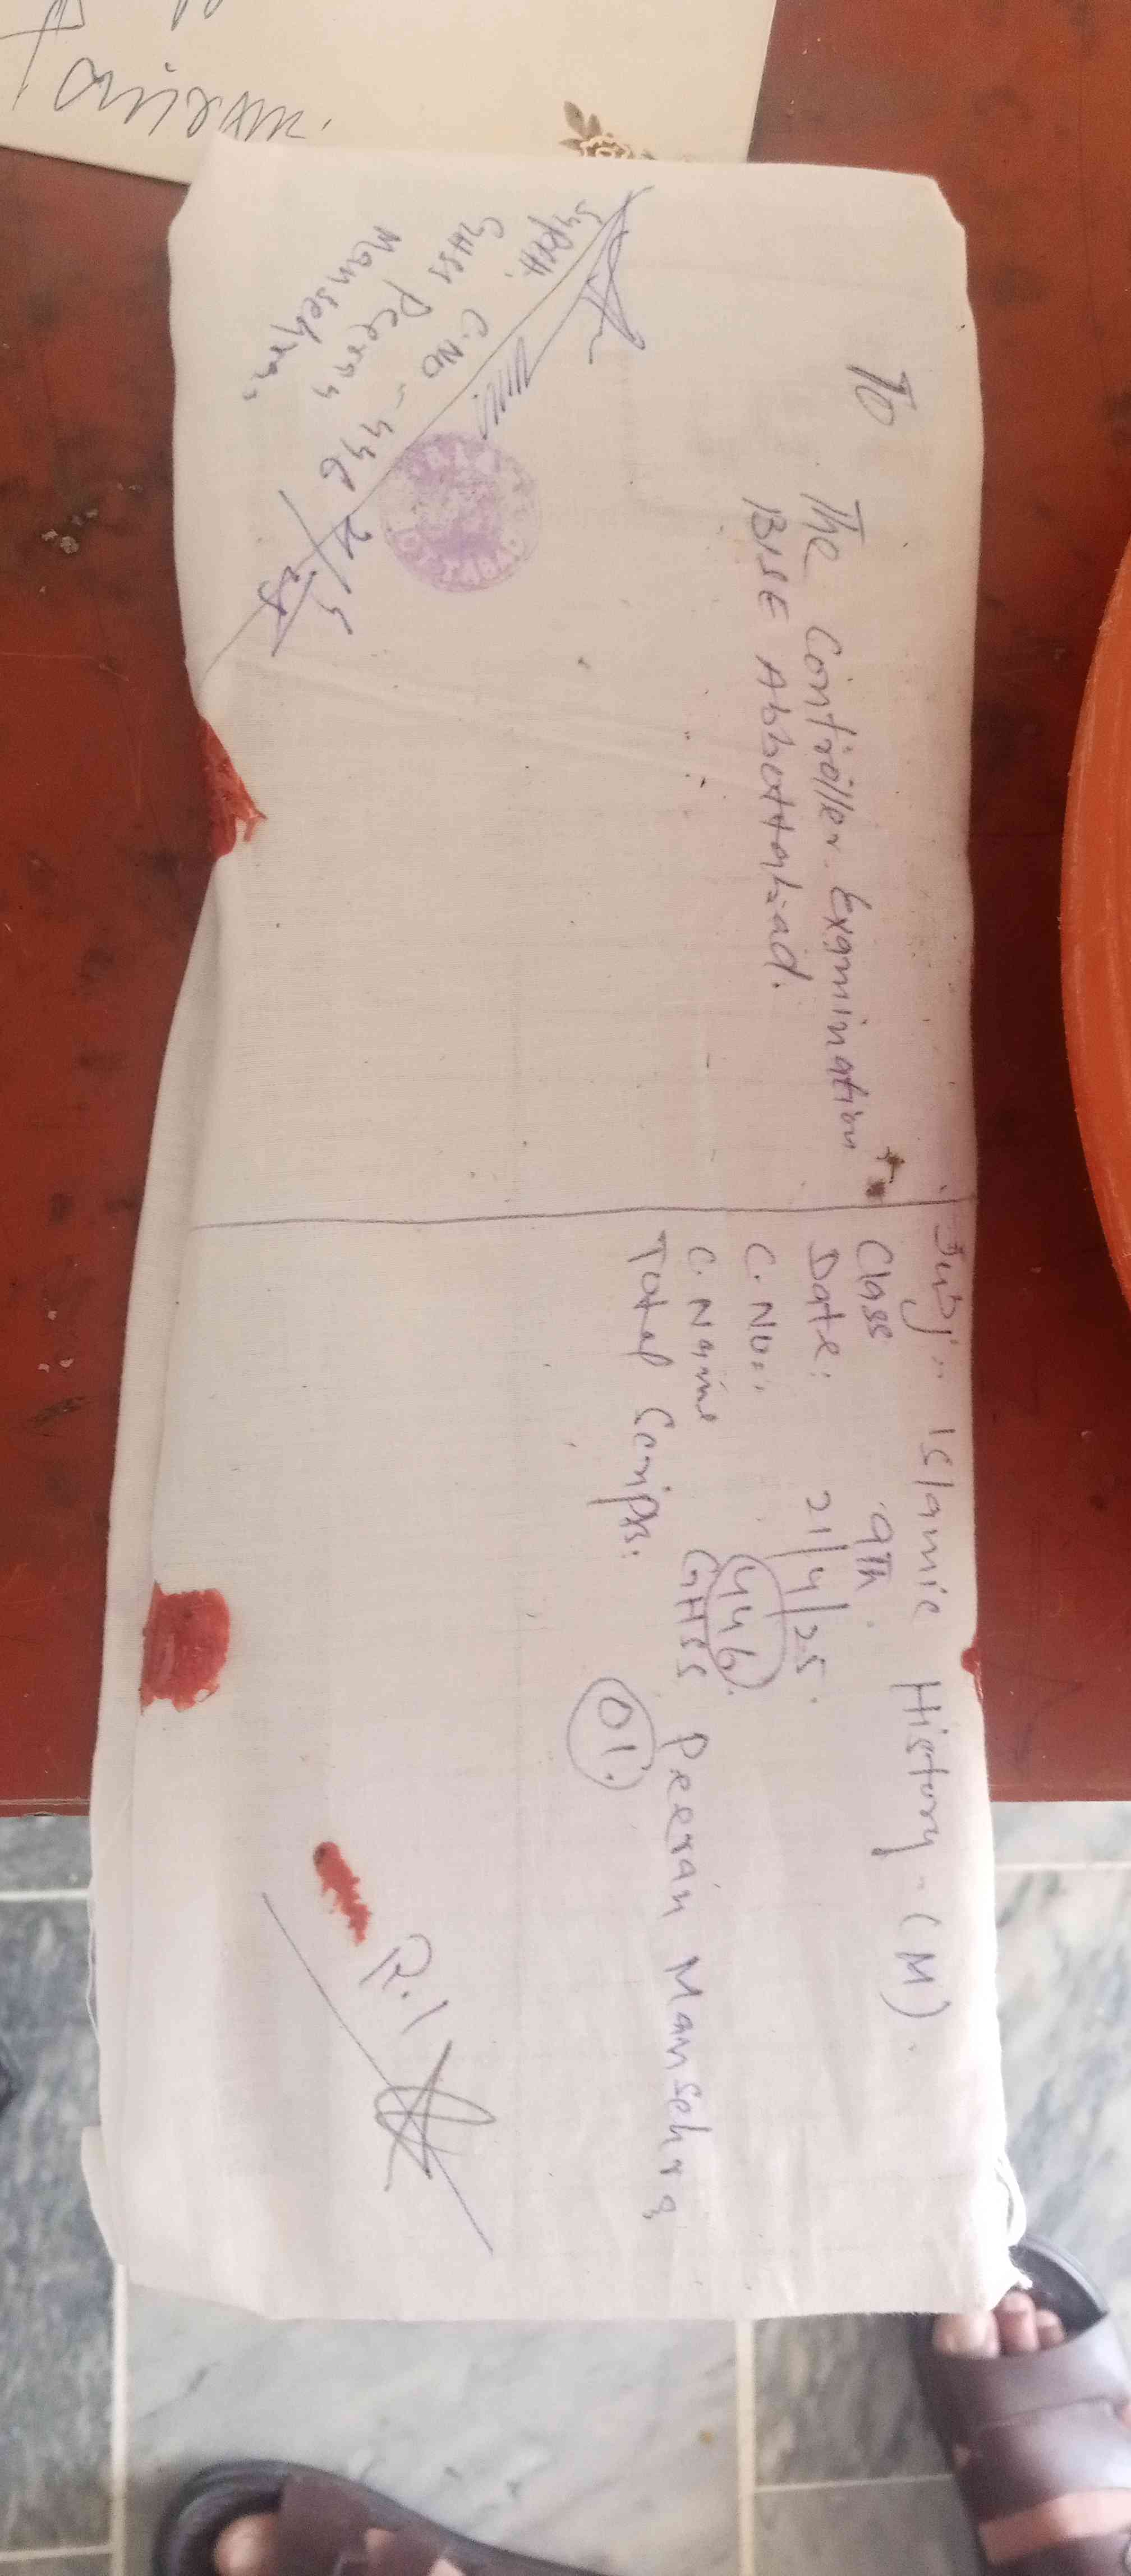 To
The Controller Examination
BISE Abbottabad.
Subj:- Islamic History - (M).
Class 9Th.
Date: 21/4/25.
C.No:. 446.
C.Name GHSS Peeran Mansehra
Total Scripts. 01.
R.I
Suptt.
GHSS Peeran
C.No - 446
Mansehra.